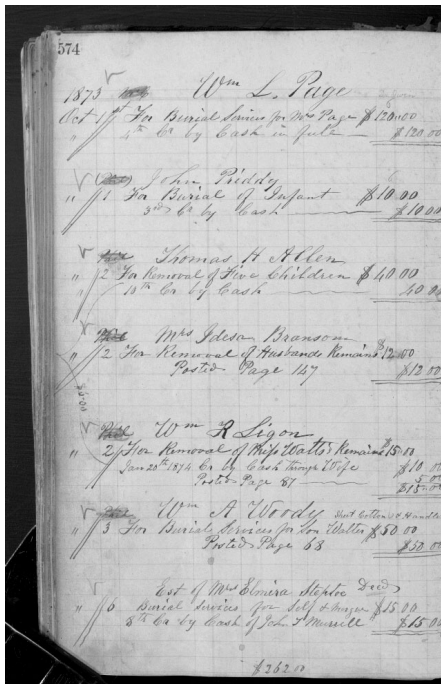 574
1873 Wm L. Page
Oct 1st For Burial Services for Mrs Page $120.00
" 4th Cr by Cash in full — $120.00
John Priddy
" 1 For Burial of Infant $10.00
3rd Cr by Cash — $10.00
Thomas H Allen
" 2 For Removal of Five Children $40.00
10th Cr by Cash — 40.00
Mrs Idesa Bransom
" 2 For Removal of Husbands Remains $12.00
Posted Page 147 $12.00
Wm R Ligon
2 For Removal of Watts Remains $15.00
Jan 20th 1874 Cr by Cash through Wife $10.00
Posted Page 87 — 5.00
$15.00
Wm A Woody
" 3 For Burial Services for Son Walter $50.00
Posted Page 68 $50.00
Est of Mrs Elmira Steptoe Decd
" 6 Burial Services for Self & $15.00
8th Cr by Cash of John T Murrell $15.00
$262.00